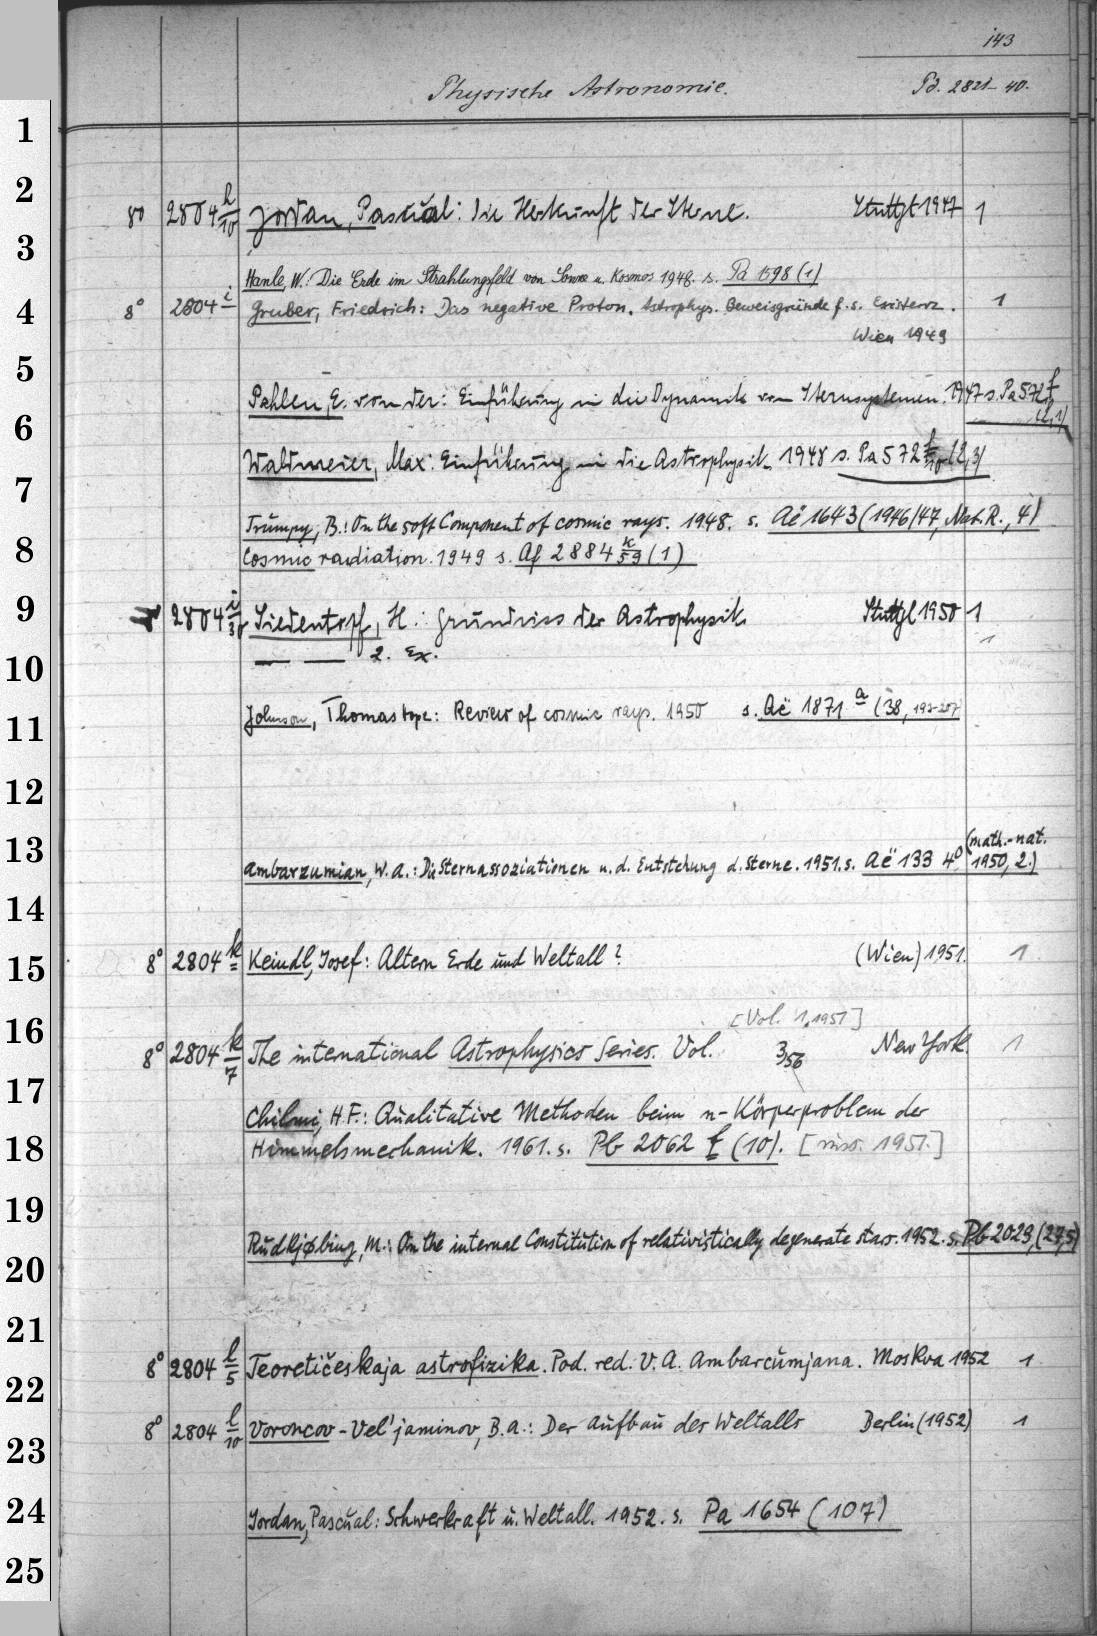 143
Physische Astronomie. Pd. 2821-40.
1
2
8° 2804 h/10 Jordan, Pascual: Die Herkunft der Sterne. Stuttgt 1947 1
3
Hanle, W.: Die Erde im Strahlungsfeld von Sonne u. Kosmos 1948. s. Pa 1598 (1)
4
8° 2804 i Gruber, Friedrich: Das negative Proton. Astrophys. Beweisgründe f. s. Existenz. 1
Wien 1949
5
Pahlen, E. von der: Einführung in die Dynamik von Sternsystemen. 1947 s. Pa 572 f
(2,1)
6
Waldmeier, Max: Einführung in die Astrophysik. 1948 s. Pa 572 f/10 (2,3)
7
Trumpy, B.: On the soft Component of cosmic rays. 1948. s. Aë 1643 (1946/47, Nat. R., 4)
8
Cosmic radiation. 1949 s. Af 2884 k/59 (1)
9
2804 i/30 Siedentopf, H.: Grundriss der Astrophysik Stuttgt 1950 1
10
— — 2. Ex. 1
11
Johnson, Thomas Hope: Review of cosmic rays. 1950 s. Aë 1871 a (38, 193-207
12
13
(math.-nat.
Ambarzumian, W. A.: Die Sternassoziationen u. d. Entstehung d. Sterne. 1951. s. Aë 133 4° 1950, 2.)
14
15
8° 2804 k Keindl, Josef: Altern Erde und Weltall? (Wien) 1951. 1
16
[Vol. 1, 1951]
8° 2804 k/7 The international Astrophysics Series. Vol. 3/56 New York. 1
17
Chilmi, H F.: Qualitative Methoden beim n-Körperproblem der
18
Himmelsmechanik. 1961. s. Pb 2062 f (10). [russ. 1951.]
19
Rudkjøbing, M.: On the internal Constitution of relativistically degenerate stars. 1952. s. Pb 2029, (27,5)
20
21
8° 2804 l/5 Teoretičeskaja astrofizika. Pod. red. V. A. Ambarcumjana. Moskva 1952 1
22
8° 2804 l/10 Voroncov-Vel'jaminov, B. A.: Der Aufbau des Weltalls Berlin (1952) 1
23
24
Jordan, Pascual: Schwerkraft u. Weltall. 1952. s. Pa 1654 (107)
25